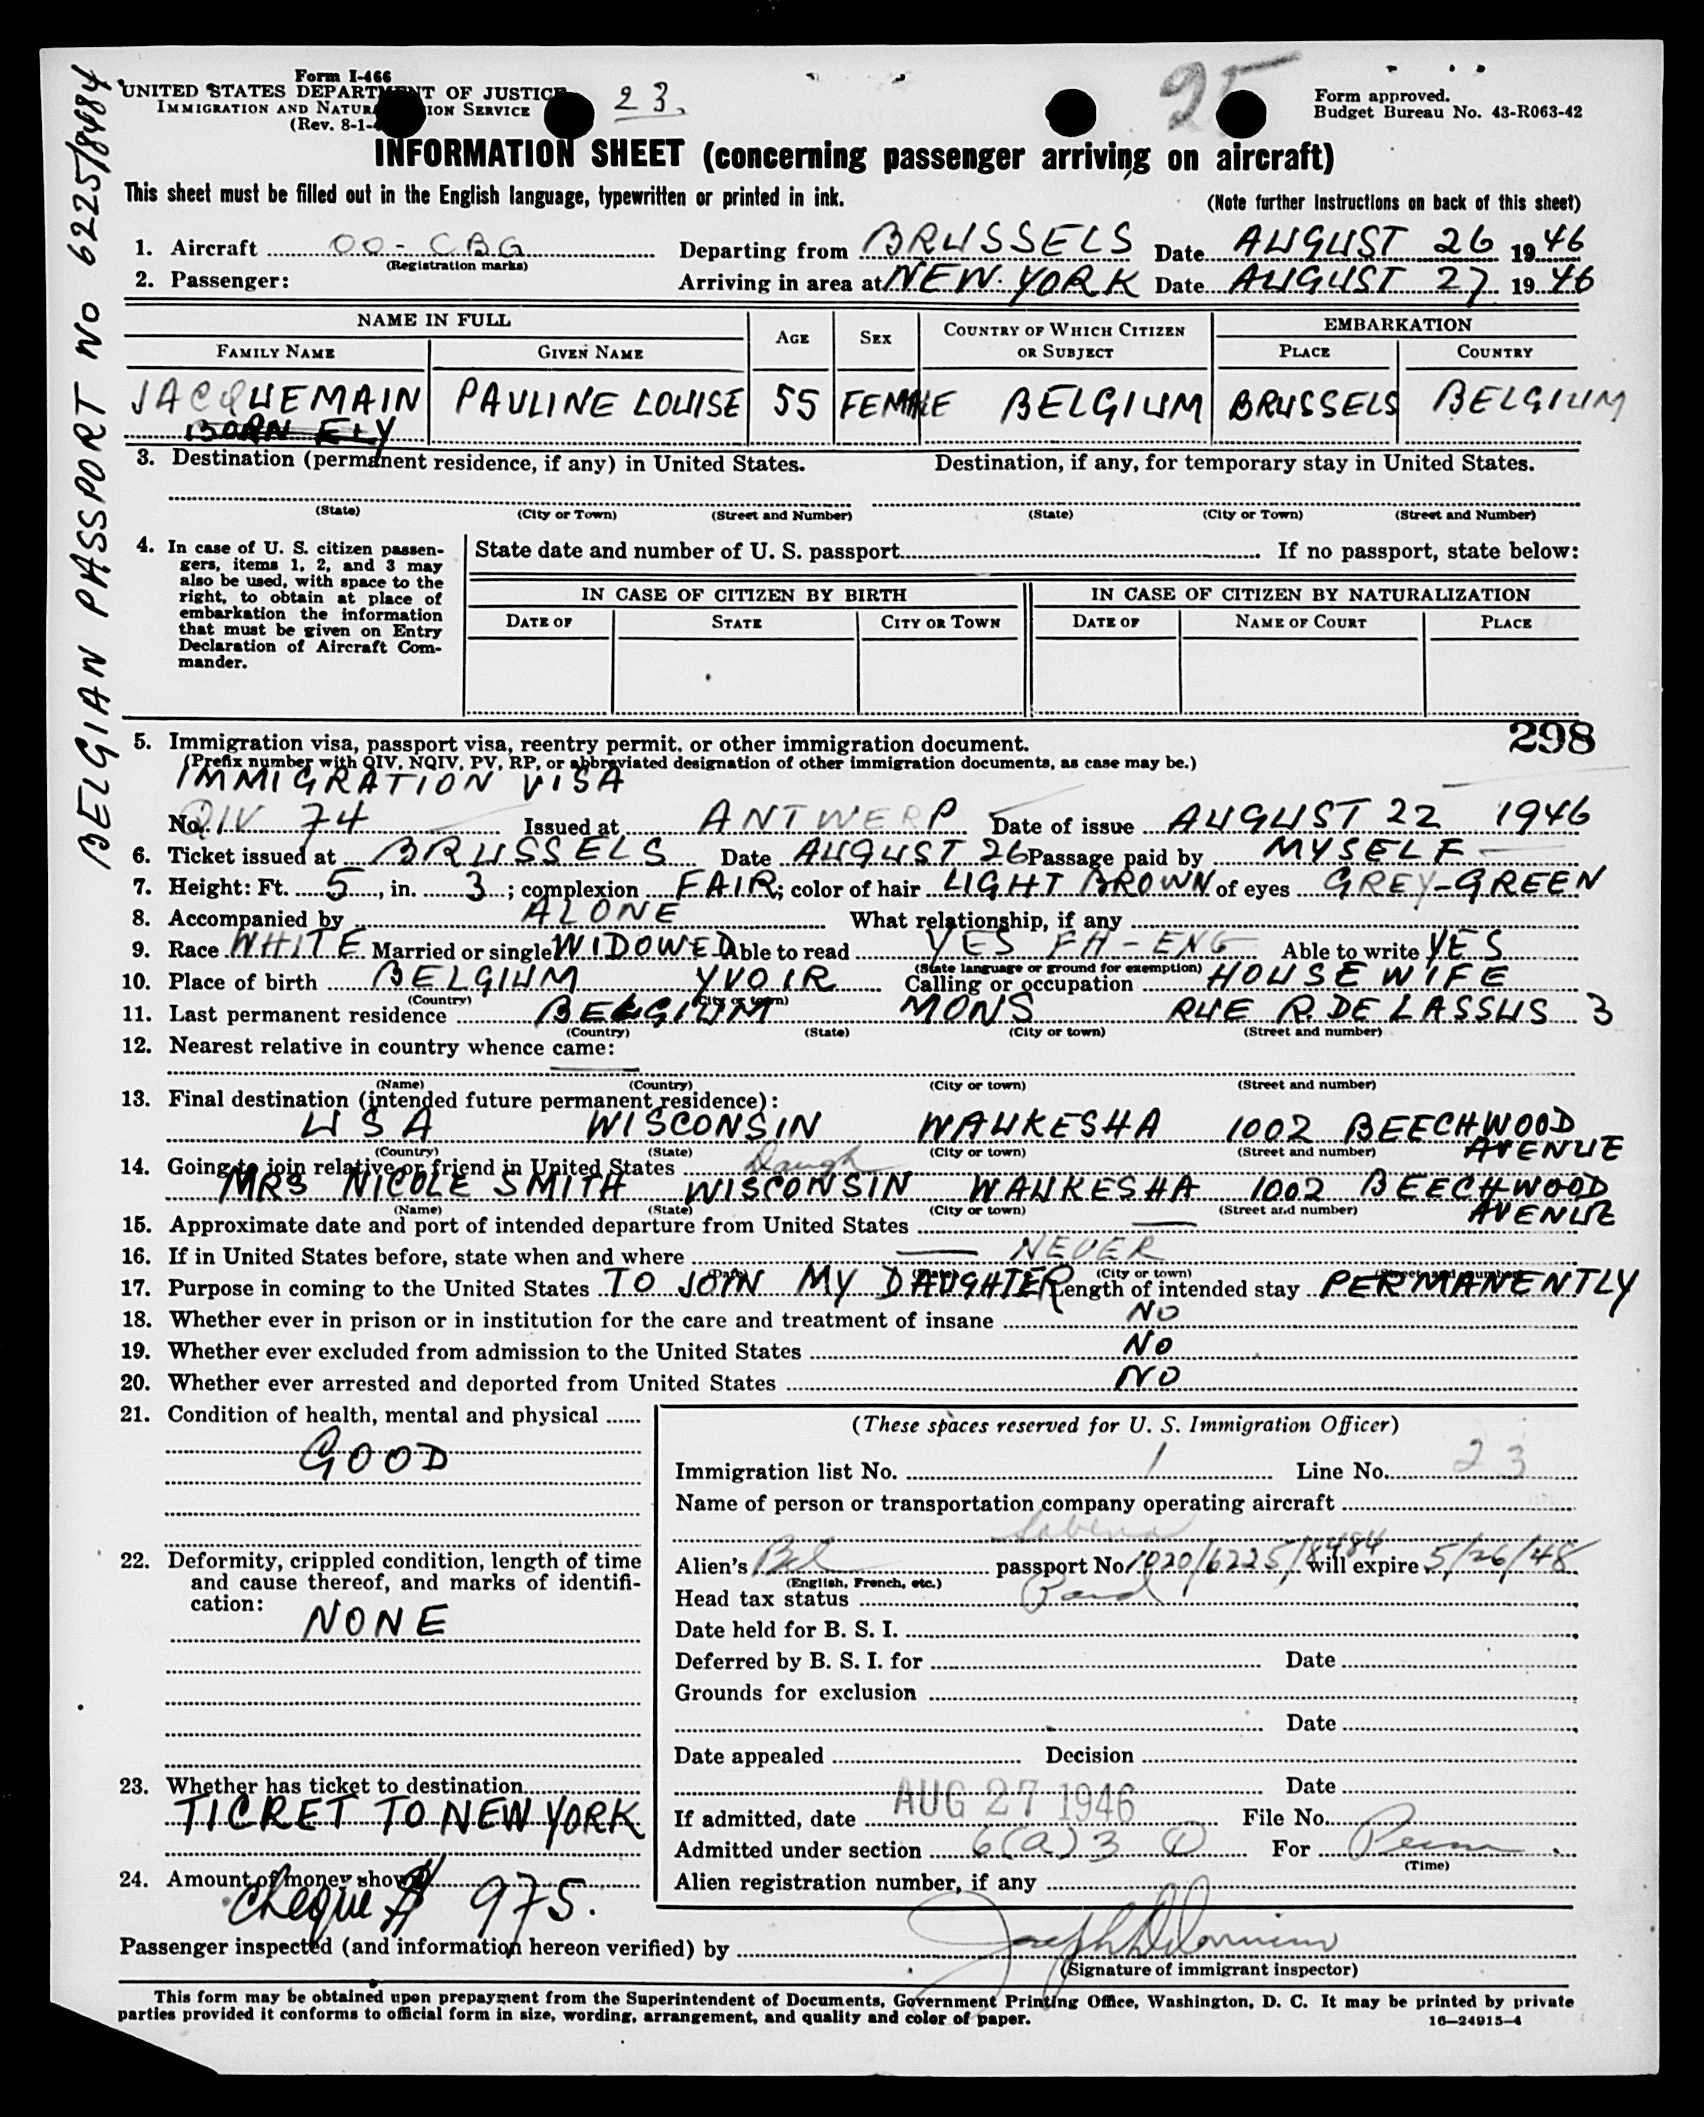 BELGIAN PASSPORT No 6225/8484
Form I-466
UNITED STATES DEPARTMENT OF JUSTICE
IMMIGRATION AND NATURALIZATION SERVICE
(Rev. 8-1-
23.
25
Form approved.
Budget Bureau No. 43-R063-42
INFORMATION SHEET (concerning passenger arriving on aircraft)
This sheet must be filled out in the English language, typewritten or printed in ink.
(Note further instructions on back of this sheet)
1. Aircraft OO-CBG Departing from BRUSSELS Date AUGUST 26 1946
(Registration marks)
2. Passenger: Arriving in area at NEW YORK Date AUGUST 27 1946
NAME IN FULL AGE SEX COUNTRY OF WHICH CITIZEN OR SUBJECT EMBARKATION
FAMILY NAME GIVEN NAME PLACE COUNTRY
JACQUEMAIN PAULINE LOUISE 55 FEMALE BELGIUM BRUSSELS BELGIUM
BORN ELY
3. Destination (permanent residence, if any) in United States. Destination, if any, for temporary stay in United States.
(State) (City or Town) (Street and Number) (State) (City or Town) (Street and Number)
4. In case of U. S. citizen passengers, items 1, 2, and 3 may
also be used, with space to the
right, to obtain at place of
embarkation the information
that must be given on Entry
Declaration of Aircraft Commander.
State date and number of U. S. passport If no passport, state below:
IN CASE OF CITIZEN BY BIRTH IN CASE OF CITIZEN BY NATURALIZATION
DATE OF STATE CITY OR TOWN DATE OF NAME OF COURT PLACE
298
5. Immigration visa, passport visa, reentry permit, or other immigration document.
(Prefix number with QIV, NQIV, PV, RP, or abbreviated designation of other immigration documents, as case may be.)
IMMIGRATION VISA
No. QIV 74 Issued at ANTWERP Date of issue AUGUST 22 1946
6. Ticket issued at BRUSSELS Date AUGUST 26 Passage paid by MYSELF
7. Height: Ft. 5, in. 3; complexion FAIR; color of hair LIGHT BROWN of eyes GREY-GREEN
8. Accompanied by ALONE What relationship, if any
9. Race WHITE Married or single WIDOWED Able to read YES FH-ENG Able to write YES
(State language or ground for exemption)
10. Place of birth BELGIUM YVOIR Calling or occupation HOUSEWIFE
(Country) (City or town)
11. Last permanent residence BELGIUM MONS RUE R. DE LASSUS 3
(Country) (State) (City or town) (Street and number)
12. Nearest relative in country whence came:
(Name) (Country) (City or town) (Street and number)
13. Final destination (intended future permanent residence):
USA WISCONSIN WAUKESHA 1002 BEECHWOOD AVENUE
(Country) (State) (City or town) (Street and number)
14. Going to join relative or friend in United States Daugh
MRS NICOLE SMITH WISCONSIN WAUKESHA 1002 BEECHWOOD AVENUE
(Name) (State) (City or town) (Street and number)
15. Approximate date and port of intended departure from United States
16. If in United States before, state when and where NEVER
(Date) (State) (City or town) (Street and number)
17. Purpose in coming to the United States TO JOIN MY DAUGHTER Length of intended stay PERMANENTLY
18. Whether ever in prison or in institution for the care and treatment of insane NO
19. Whether ever excluded from admission to the United States NO
20. Whether ever arrested and deported from United States NO
21. Condition of health, mental and physical
GOOD
22. Deformity, crippled condition, length of time
and cause thereof, and marks of identification:
NONE
23. Whether has ticket to destination
TICKET TO NEW YORK
24. Amount of money shown
Cheque $ 975.
(These spaces reserved for U. S. Immigration Officer)
Immigration list No. 1 Line No. 23
Name of person or transportation company operating aircraft
Sabena
Alien's Bel passport No. 1020/6225/8484 will expire 5/26/48
(English, French, etc.)
Head tax status
Date held for B. S. I.
Deferred by B. S. I. for Date
Grounds for exclusion
Date
Date appealed Decision
Date
If admitted, date AUG 27 1946 File No.
Admitted under section 6(a)3 For
(Time)
Alien registration number, if any
Passenger inspected (and information hereon verified) by
(Signature of immigrant inspector)
This form may be obtained upon prepayment from the Superintendent of Documents, Government Printing Office, Washington, D. C. It may be printed by private
parties provided it conforms to official form in size, wording, arrangement, and quality and color of paper.
16—24915-4